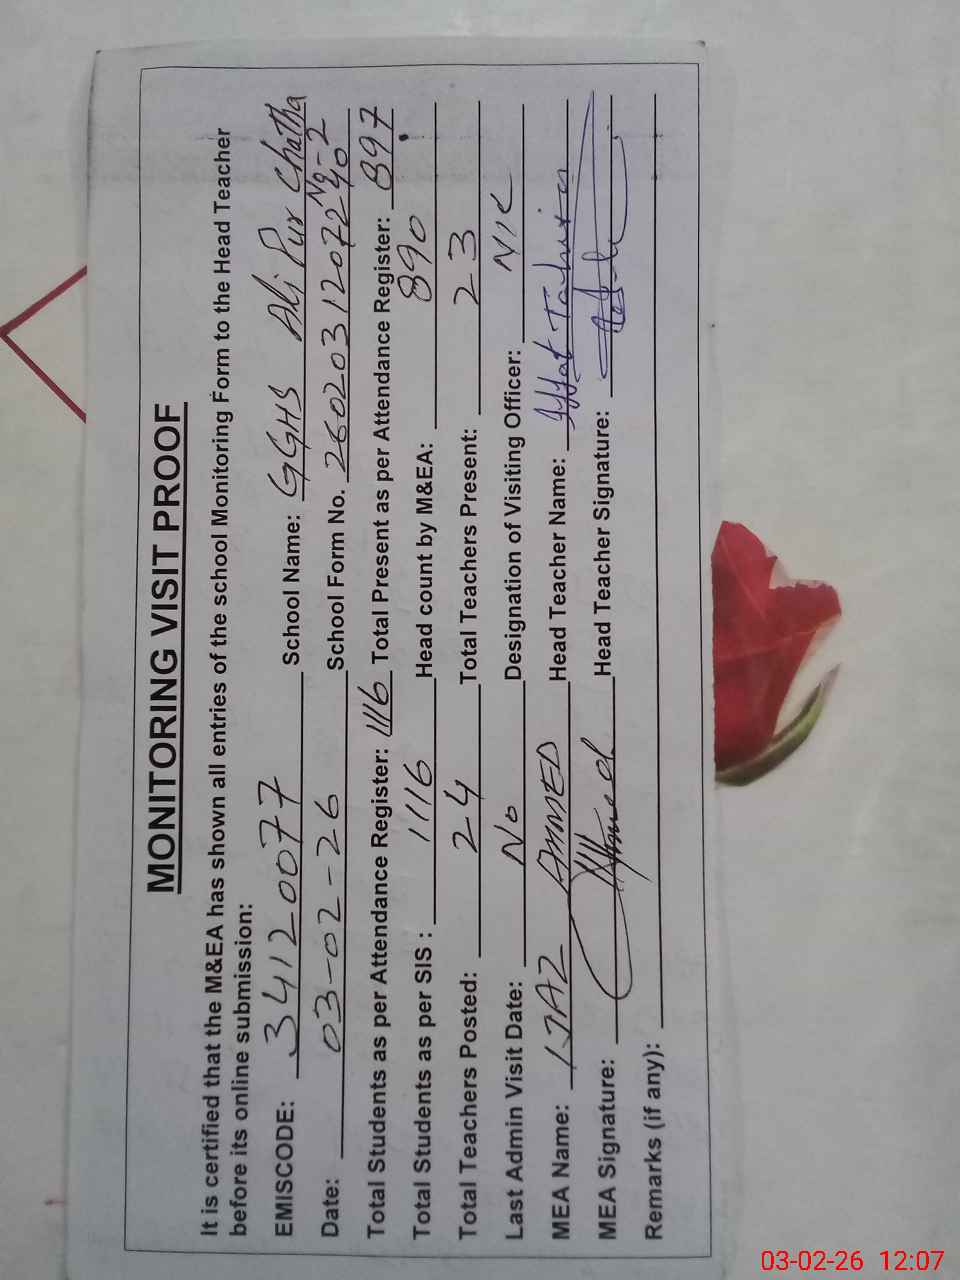 MONITORING VISIT PROOF
It is certified that the M&EA has shown all entries of the school Monitoring Form to the Head Teacher
before its online submission:
EMISCODE: 34120077 School Name: GGHS Ali Pur Chatha
No-2
Date: 03-02-26 School Form No. 260203120722402
Total Students as per Attendance Register: 1116 Total Present as per Attendance Register: 897
Total Students as per SIS : 1116 Head count by M&EA: 890
Total Teachers Posted: 24 Total Teachers Present: 23
Last Admin Visit Date: No Designation of Visiting Officer: NIL
MEA Name: IJAZ AHMED Head Teacher Name: Iffat
MEA Signature: Head Teacher Signature:
Remarks (if any):
03-02-26 12:07